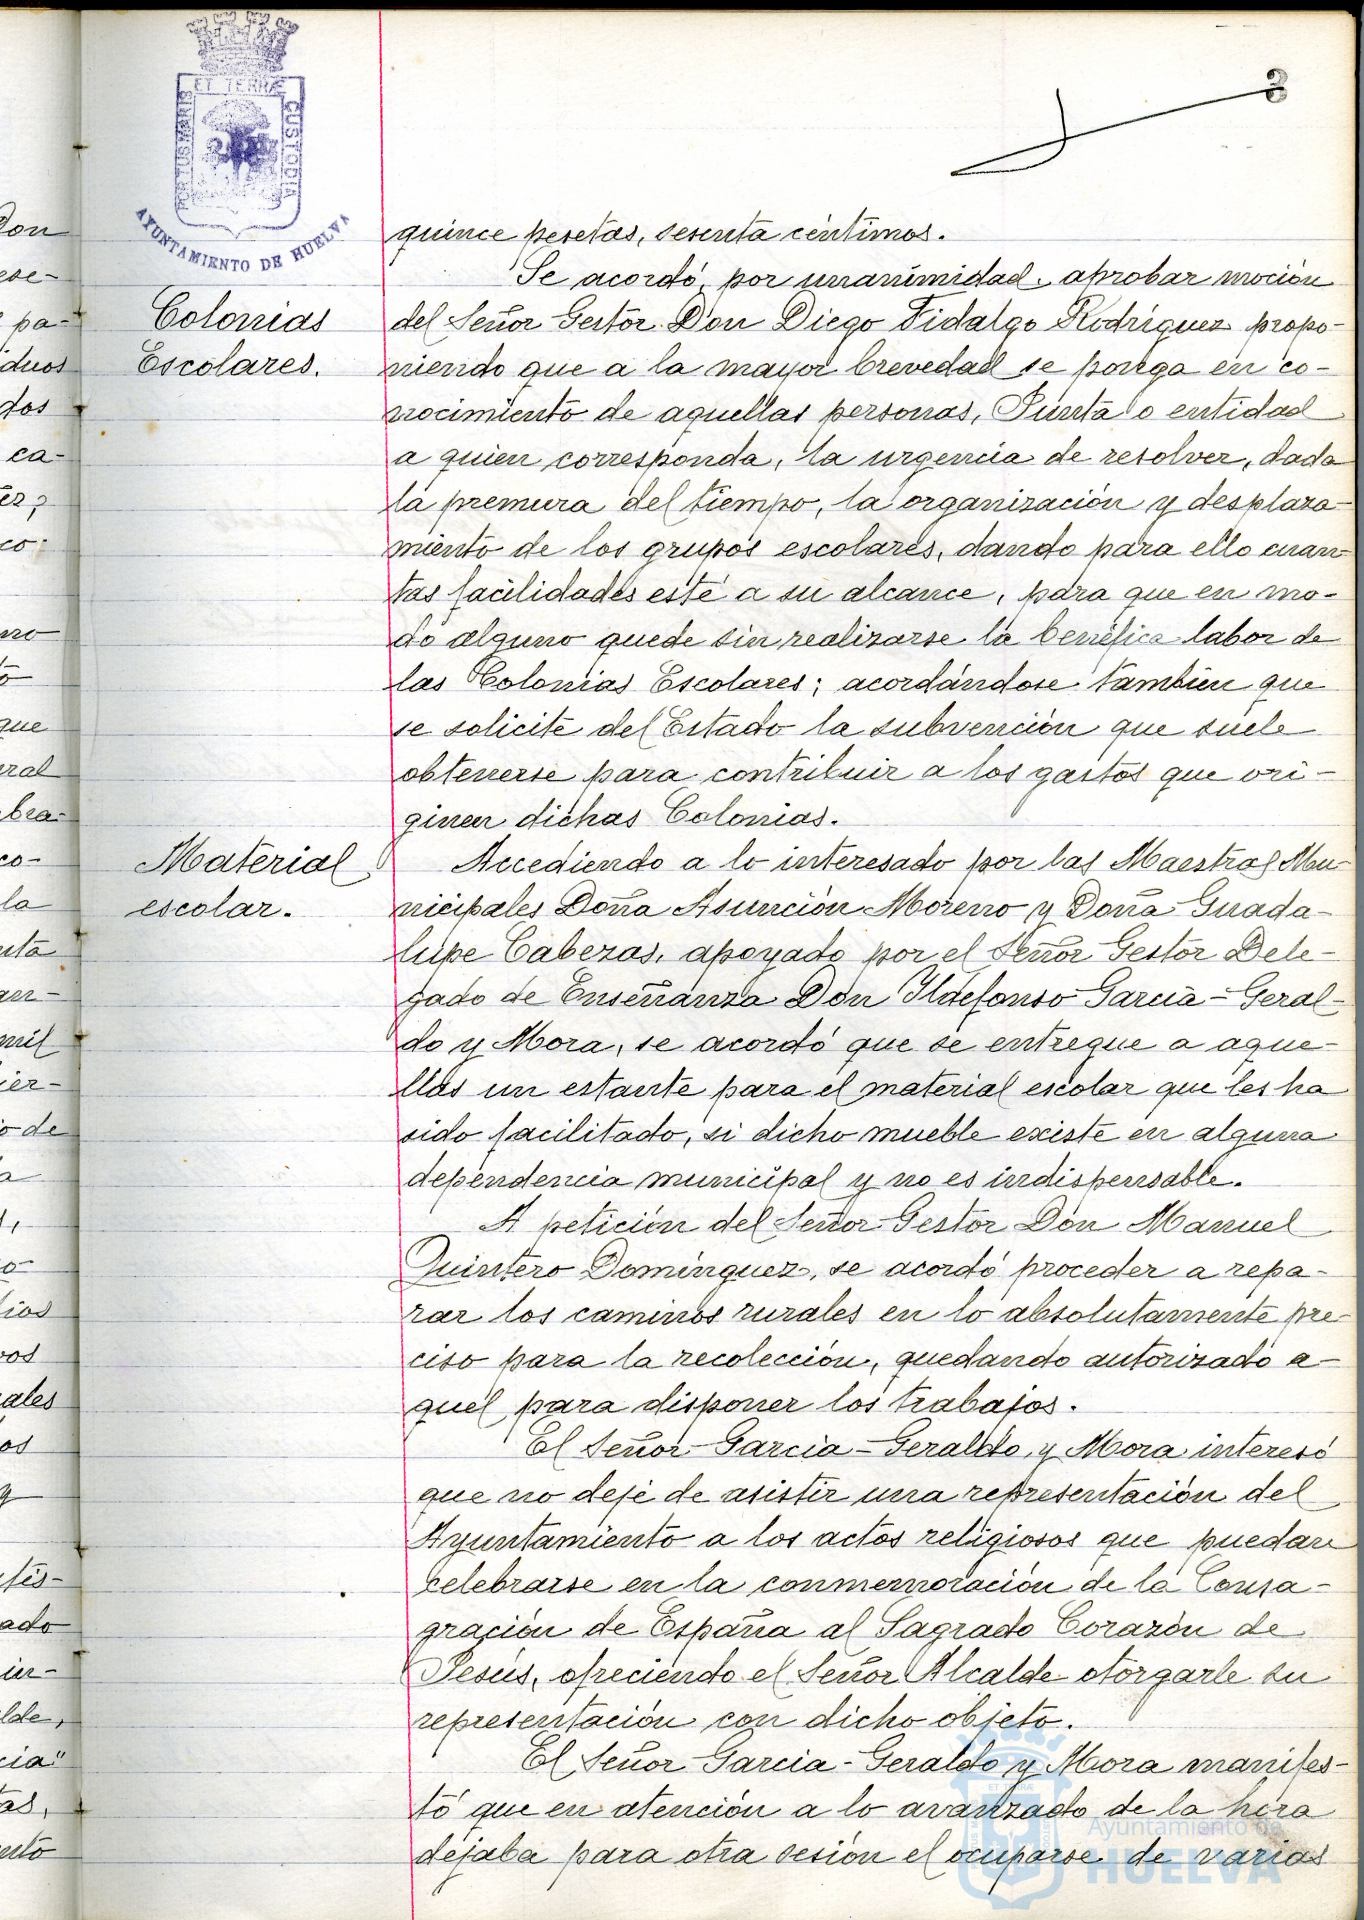 3
ET TERRÆ
PORTUS MARIS
CUSTODIA
AYUNTAMIENTO DE HUELVA
quince pesetas, sesenta céntimos.
Se acordó, por unanimidad, aprobar moción
Colonias
Escolares.
del Señor Gestor Don Diego Fidalgo Rodríguez propo-
niendo que a la mayor brevedad se ponga en co-
nocimiento de aquellas personas, Junta o entidad
a quien corresponda, la urgencia de resolver, dada
la premura del tiempo, la organización y desplaza-
miento de los grupos escolares, dando para ello cuan-
tas facilidades esté a su alcance, para que en mo-
do alguno quede sin realizarse la benéfica labor de
las Colonias Escolares; acordándose también que
se solicite del Estado la subvención que suele
obtenerse para contribuir a los gastos que ori-
ginen dichas Colonias.
Material
escolar.
Accediendo a lo interesado por las Maestras Mu-
nicipales Doña Asunción Moreno y Doña Guada-
lupe Cabezas, apoyado por el Señor Gestor Dele-
gado de Enseñanza Don Ildefonso García-Geral-
do y Mora, se acordó que se entregue a aque-
llas un estante para el material escolar que les ha
sido facilitado, si dicho mueble existe en alguna
dependencia municipal y no es indispensable.
A petición del Señor Gestor Don Manuel
Quintero Domínguez, se acordó proceder a repa-
rar los caminos rurales en lo absolutamente pre-
ciso para la recolección, quedando autorizado a-
quel para disponer los trabajos.
El Señor García-Geraldo y Mora interesó
que no deje de asistir una representación del
Ayuntamiento a los actos religiosos que puedan
celebrarse en la conmemoración de la Consa-
gración de España al Sagrado Corazón de
Jesús, ofreciendo el Señor Alcalde otorgarle su
representación con dicho objeto.
El Señor García-Geraldo y Mora manifes-
tó que en atención a lo avanzado de la hora
dejaba para otra sesión el ocuparse de varias
Ayuntamiento de
HUELVA